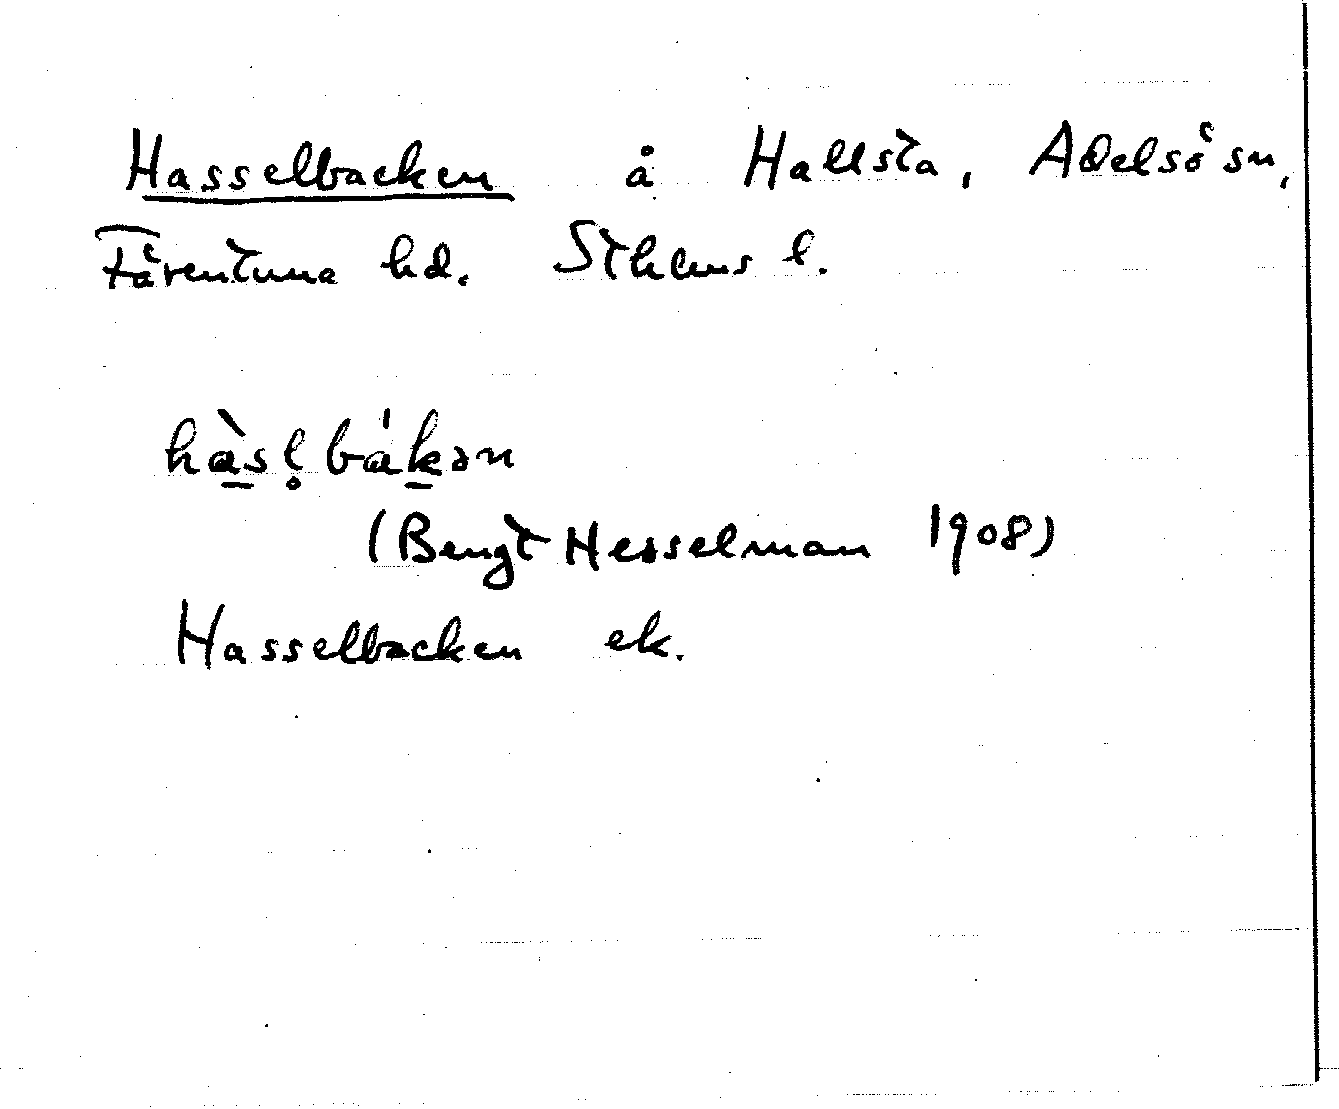 Hasselbacken å Hallsta, Adelsö sn,
Färentuna hd. Sthlms l.
hà̱sl̥bá̍ḵən
(Bengt Hesselman 1908)
Hasselbacken ek.